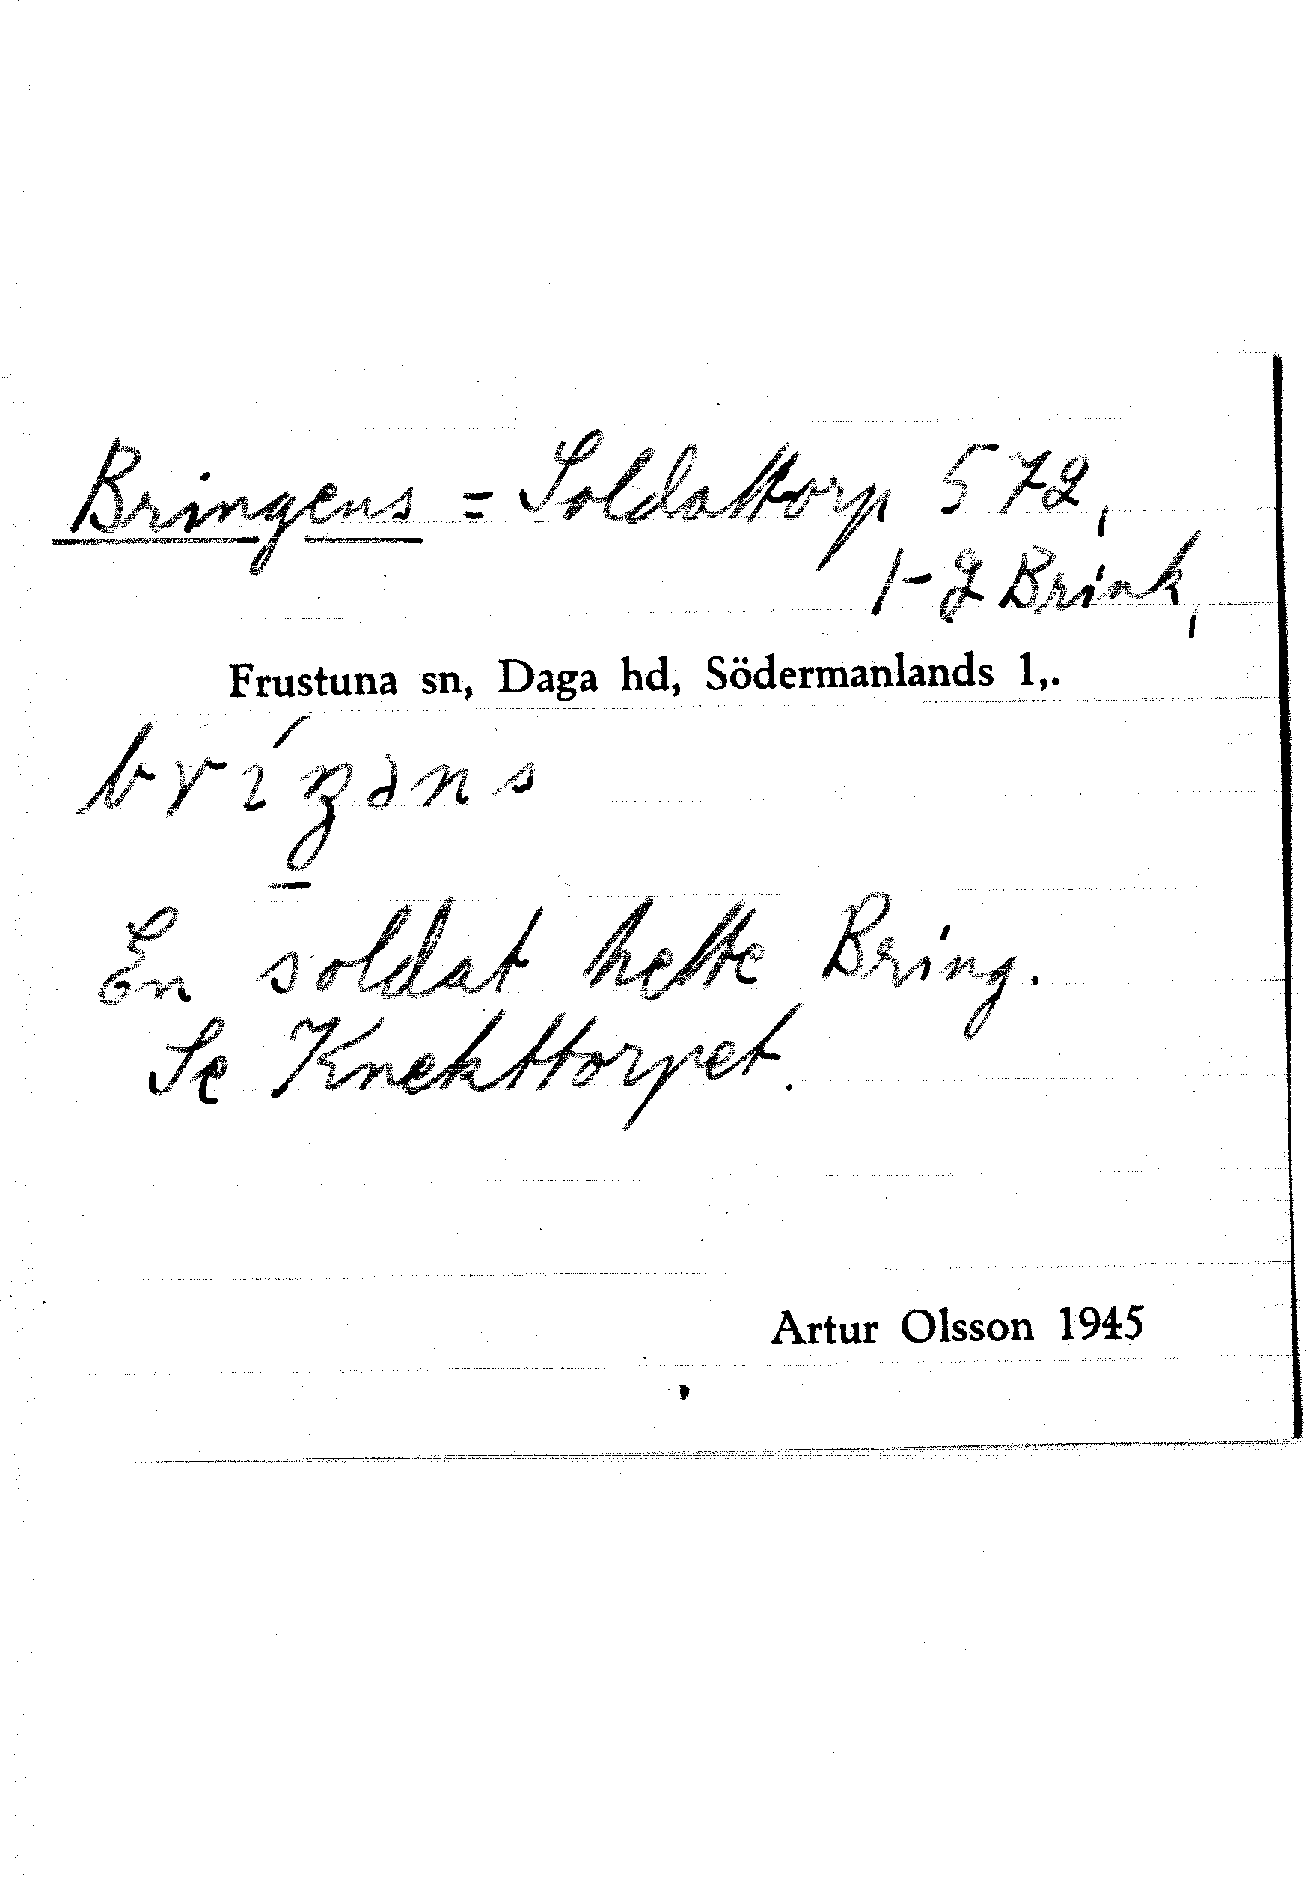 Bringens = Soldattorp 572,
1-2 Brink,
Frustuna sn, Daga hd, Södermanlands l,.
En soldat hette Bring.
Se Knekttorpet.
Artur Olsson 1945